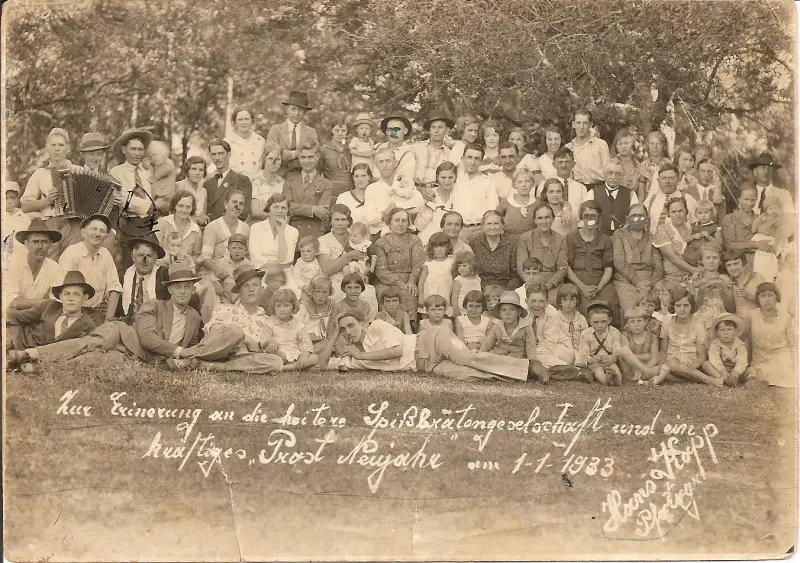 Zur Erinerung an die heitere Spißbrätengeselschaft und ein
kräftiges „Prost Neujahr“ am 1-1-1933
Hans Kopp